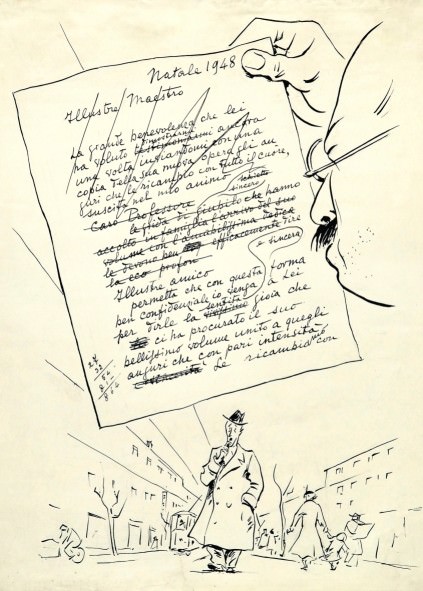 Natale 1948
Illustre Maestro
La grande benevolenza che lei
ha voluto testimoniarmi ancora
una volta inviandomi con una
copia della sua nuova opera gli au
guri che le ricambio con tutto il cuore,
suscita nel mio animo schietto
sincero
Caro Professore
la sfida di giubilo che hanno
accolto in famiglia l'arrivo del suo
volume con l'amabilissima dedica
le devono ben efficacemente dire
la eco profon e sincera
Illustre amico
permetta che con questa forma
ben confidenziale io venga a Lei
per dirle la sentita gioia che
ci ha procurato il suo
bellissimo volume unito a quegli
auguri che con pari intensità
Le ricambia con